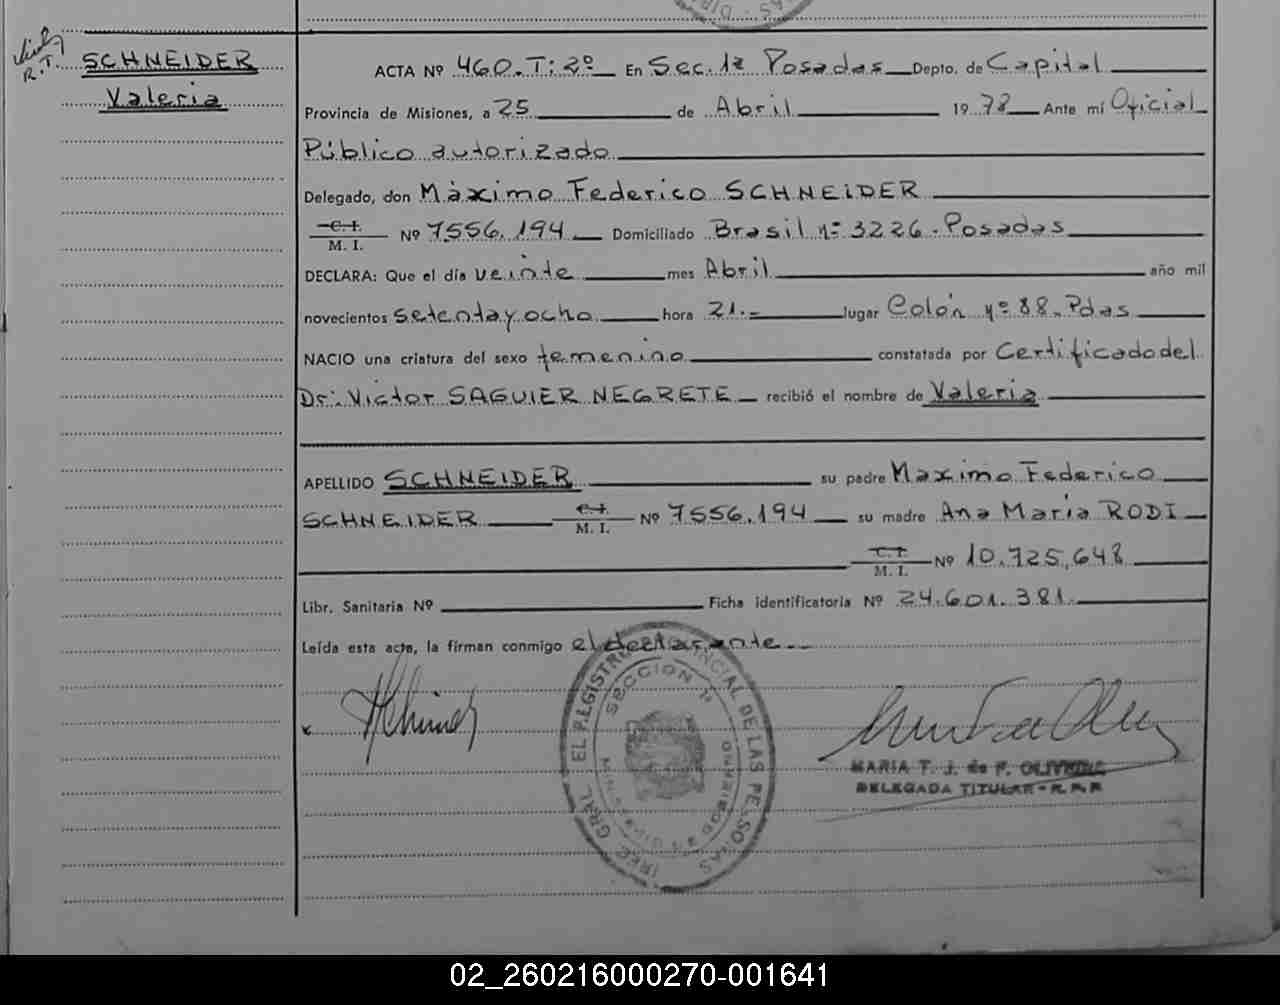 R.T.
SCHNEIDER
Valeria
ACTA Nº 460.T: 2º En Sec. 1ª Posadas Depto. de Capital
Provincia de Misiones, a 25 de Abril 1978 Ante mí Oficial
Público autorizado
Delegado, don Máximo Federico SCHNEIDER
C.I. M. I. Nº 7556.194 Domiciliado Brasil nº 3226. Posadas
DECLARA: Que el día veinte mes Abril año mil
novecientos setenta y ocho hora 21.- lugar Colón nº 88. Pdas
NACIO una criatura del sexo femenino constatada por Certificado del
Dr: Victor SAGUIER NEGRETE recibió el nombre de Valeria
APELLIDO SCHNEIDER su padre Maximo Federico
SCHNEIDER C.I. M. I. Nº 7556.194 su madre Ana María RODI
C.I. M. I. Nº 10.725,648
Libr. Sanitaria Nº Ficha identificatoria Nº 24.601.381.
Leída esta acta, la firman conmigo el declarante
SECCION 1ª
MARIA T. J. de F. OLIVEIRA
DELEGADA TITULAR - R.P.P
02_260216000270-001641